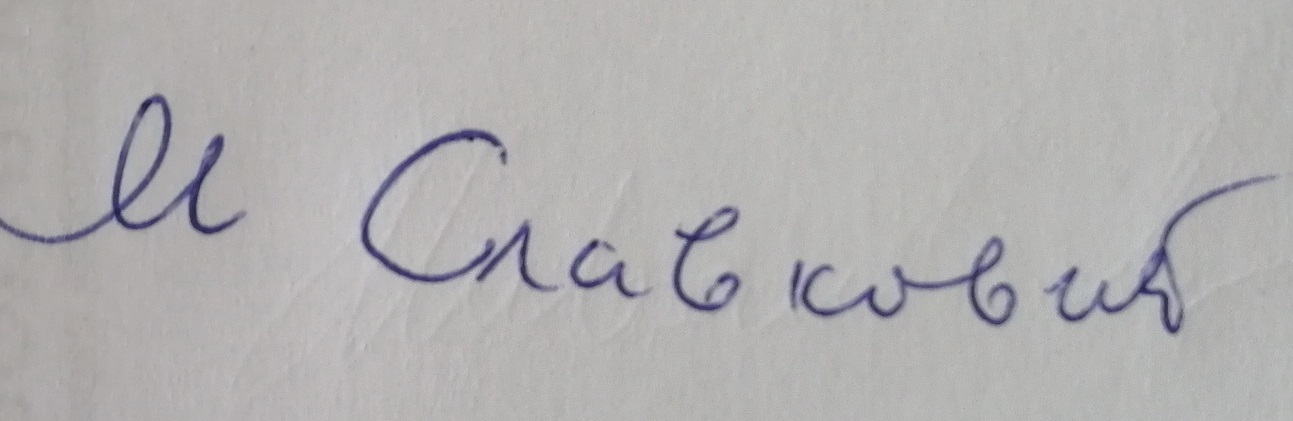 М Славковић